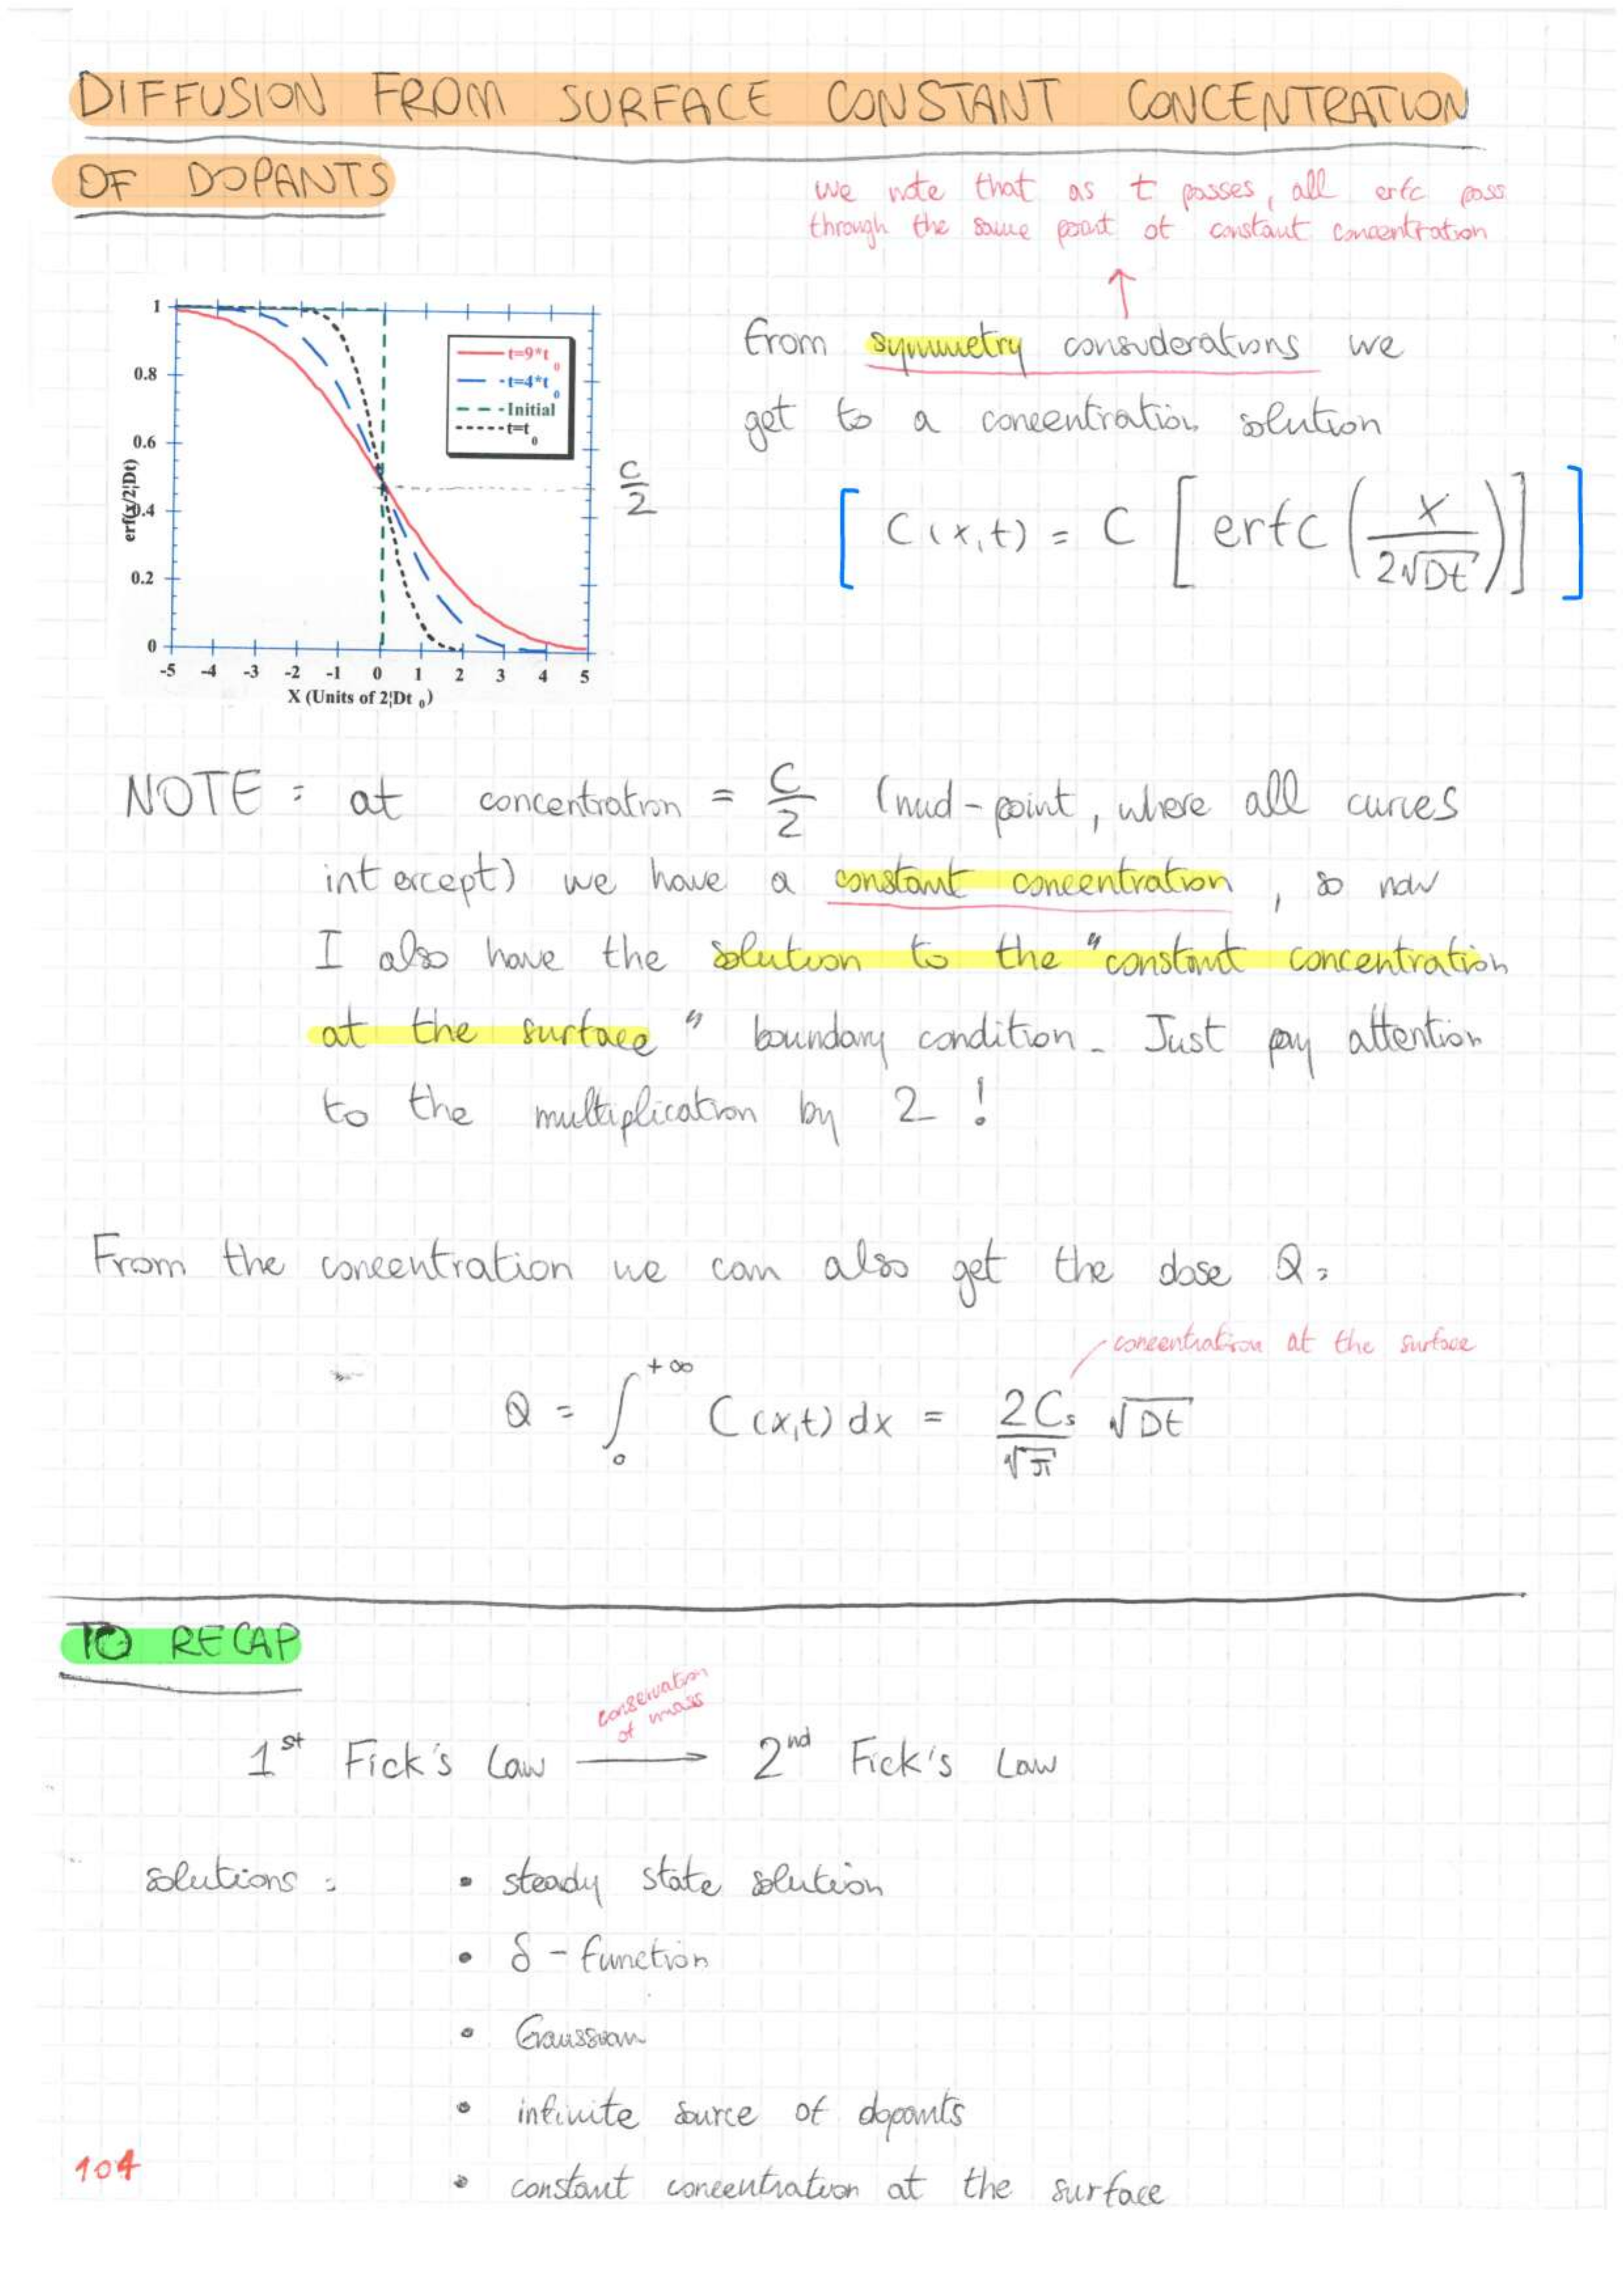 DIFFUSION FROM SURFACE CONSTANT CONCENTRATION
OF DOPANTS
we note that as t passes, all erfc pass
through the same point of constant concentration
↑
from symmetry considerations we
get to a concentration solution
[ C(x,t) = C [ erfc ( x / 2√Dt ) ] ]
1
0.8
0.6
0.4
0.2
0
erf(x/2¦Dt)
t=9*t0
-t=4*t0
-Initial
t=t0
C/2
-5 -4 -3 -2 -1 0 1 2 3 4 5
X (Units of 2¦Dt 0)
NOTE : at concentration = C/2 (mid-point, where all curves
intercept) we have a constant concentration, so now
I also have the solution to the "constant concentration
at the surface" boundary condition. Just pay attention
to the multiplication by 2 !
From the concentration we can also get the dose Q:
concentration at the surface
Q = ∫₀^+∞ C(x,t) dx = 2Cs/√π √Dt
TO RECAP
conservation
of mass
1st Fick's Law ⟶ 2nd Fick's Law
solutions : • steady state solution
• δ - function
• Gaussian
• infinite source of dopants
• constant concentration at the surface
104